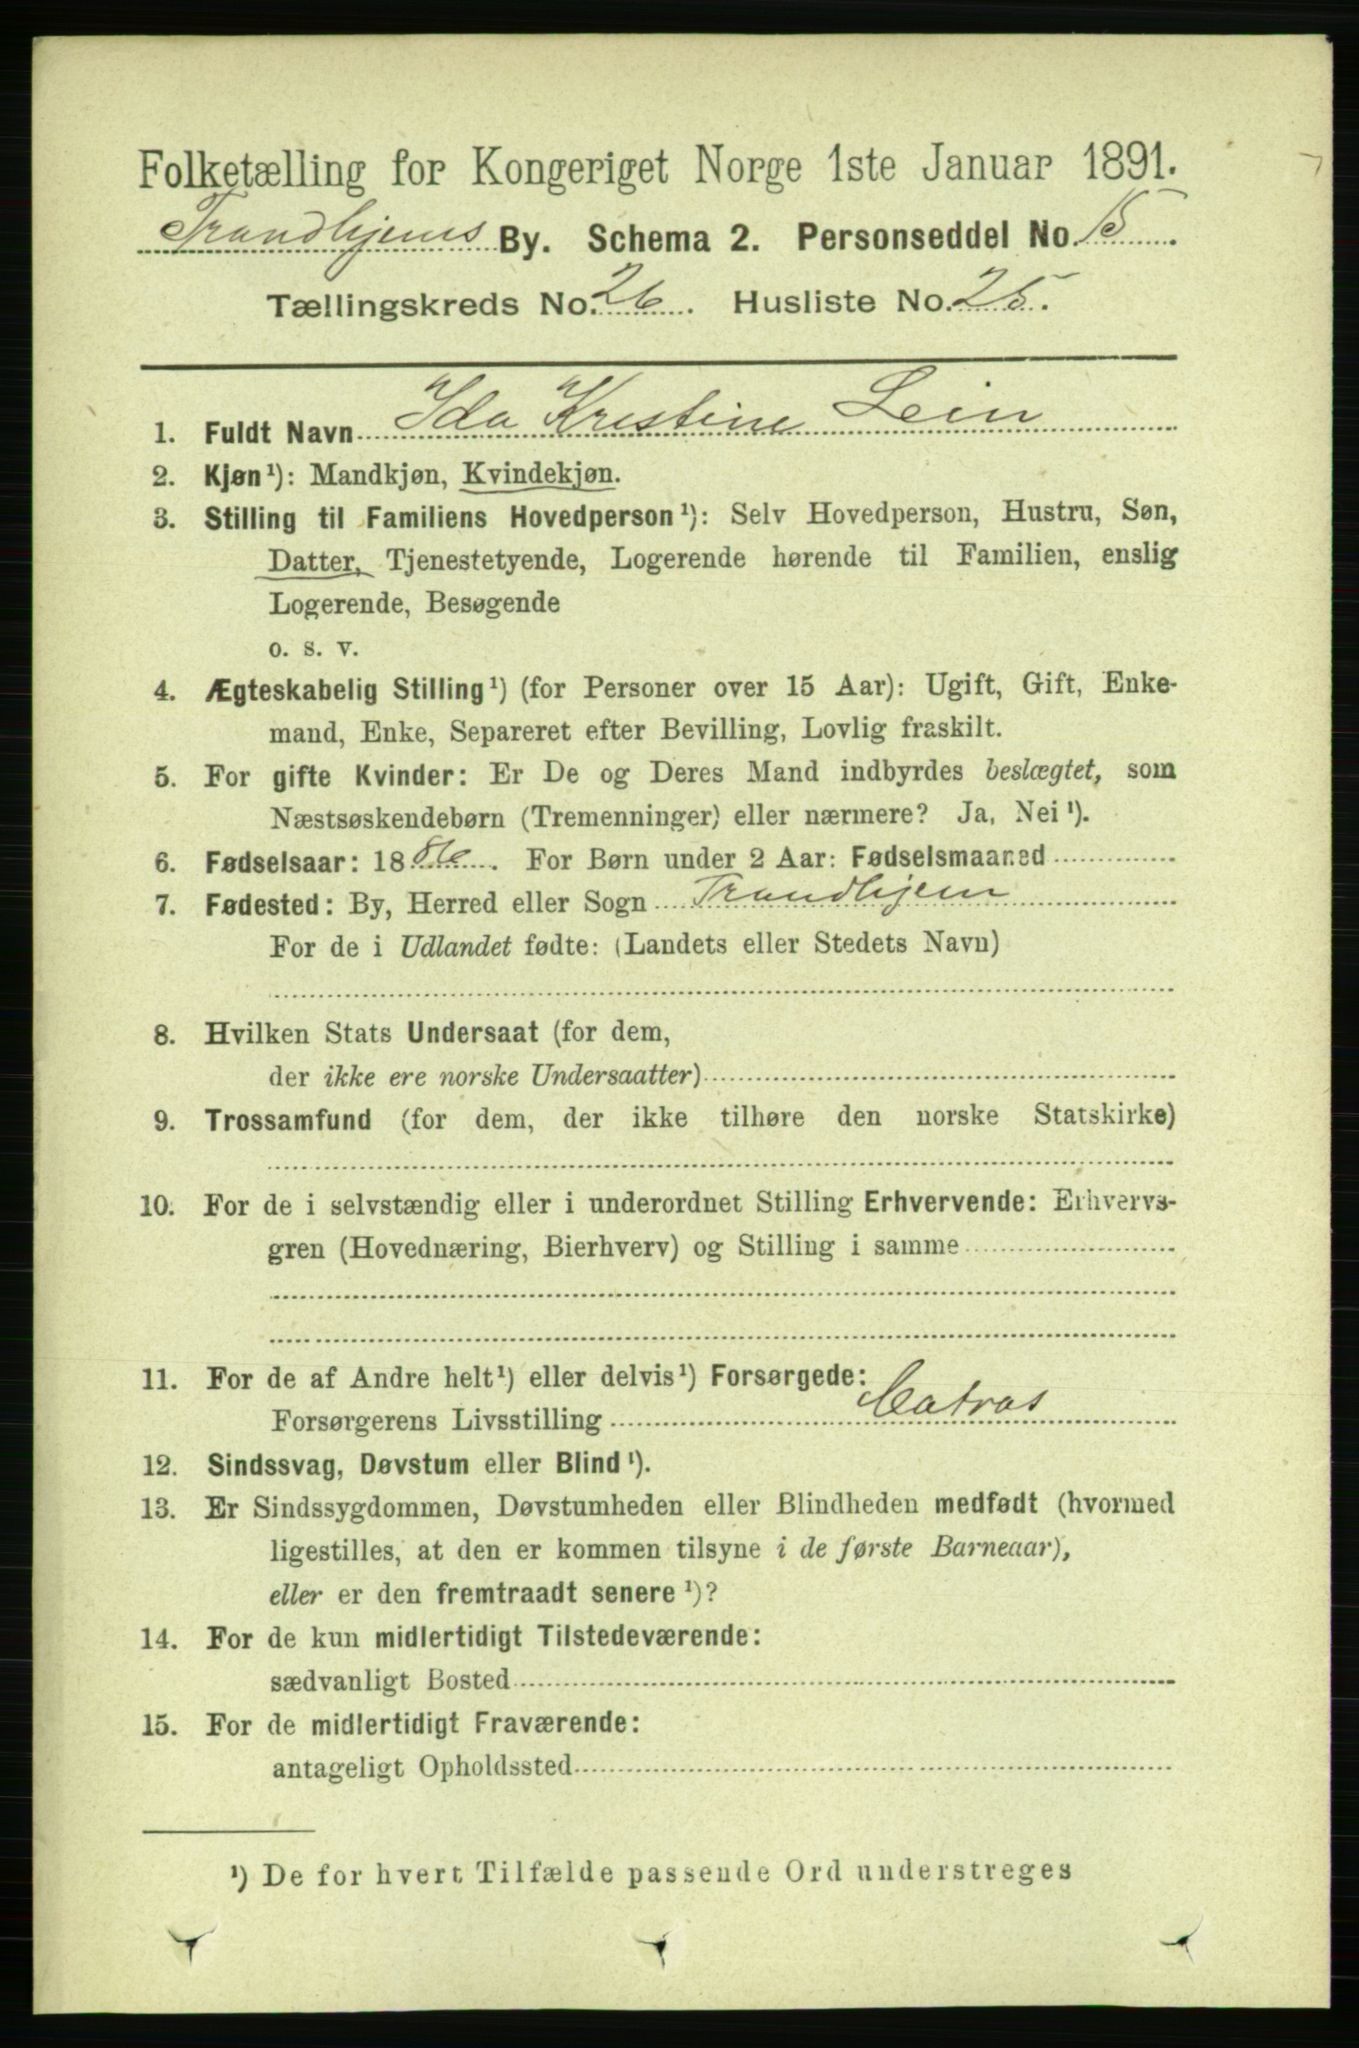 Folketælling for Kongeriget Norge 1ste Januar 1891.
Trondhjems By. Schema 2. Personseddel No. 15
Tællingskreds No. 26. Husliste No. 25.
1. Fuldt Navn Ida Kristine Lein
2. Kjøn¹): Mandkjøn, Kvindekjøn.
3. Stilling til Familiens Hovedperson¹): Selv Hovedperson, Hustru, Søn,
Datter, Tjenestetyende, Logerende hørende til Familien, enslig
Logerende, Besøgende
o. s. v.
4. Ægteskabelig Stilling¹) (for Personer over 15 Aar): Ugift, Gift, Enke-
mand, Enke, Separeret efter Bevilling, Lovlig fraskilt.
5. For gifte Kvinder: Er De og Deres Mand indbyrdes beslægtet, som
Næstsøskendebørn (Tremenninger) eller nærmere? Ja, Nei¹).
6. Fødselsaar: 1886. For Børn under 2 Aar: Fødselsmaaned
7. Fødested: By, Herred eller Sogn Trondhjem
For de i Udlandet fødte: (Landets eller Stedets Navn)
8. Hvilken Stats Undersaat (for dem,
der ikke ere norske Undersaatter)
9. Trossamfund (for dem, der ikke tilhøre den norske Statskirke)
10. For de i selvstændig eller i underordnet Stilling Erhvervende: Erhvervs-
gren (Hovednæring, Bierhverv) og Stilling i samme
11. For de af Andre helt¹) eller delvis¹) Forsørgede:
Forsørgerens Livsstilling Matros
12. Sindssvag, Døvstum eller Blind¹).
13. Er Sindssygdommen, Døvstumheden eller Blindheden medfødt (hvormed
ligestilles, at den er kommen tilsyne i de første Barneaar),
eller er den fremtraadt senere¹)?
14. For de kun midlertidigt Tilstedeværende:
sædvanligt Bosted
15. For de midlertidigt Fraværende:
antageligt Opholdssted
¹) De for hvert Tilfælde passende Ord understreges